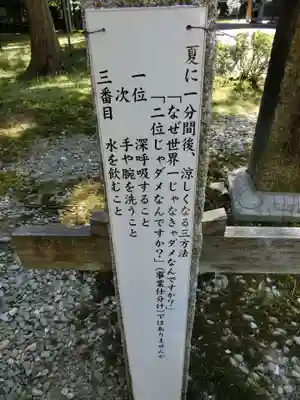 夏に一分間後、涼しくなる三方法
「なぜ世界一じゃなきゃダメなんですか?」
「二位じゃダメなんですか?」(事業仕分け)ではありませんが
一位 深呼吸すること
次 手や腕を洗うこと
三番目 水を飲むこと